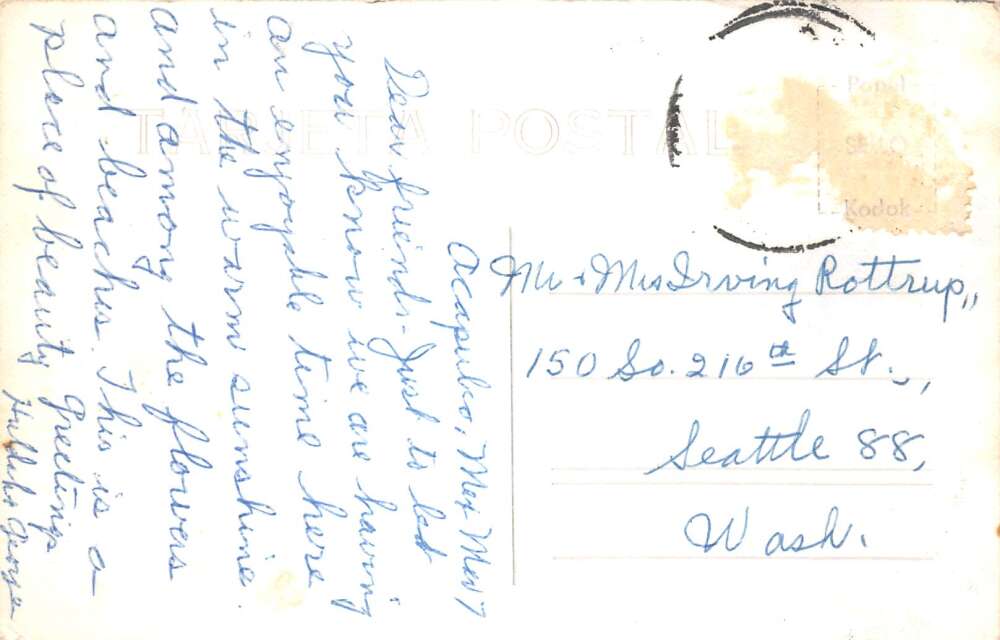 TARJETA POSTAL
Papel
SELLO
Kodak
Acapulco, Mex Mar 7
Dear friends - Just to let
you know we are having
an enjoyable time here
in the warm sunshine.
and among the flowers
and beaches. This is a
place of beauty Greetings
George
Mr & Mrs Irving Rottrup,,
150 So. 216th St.,
Seattle 88,
Wash.